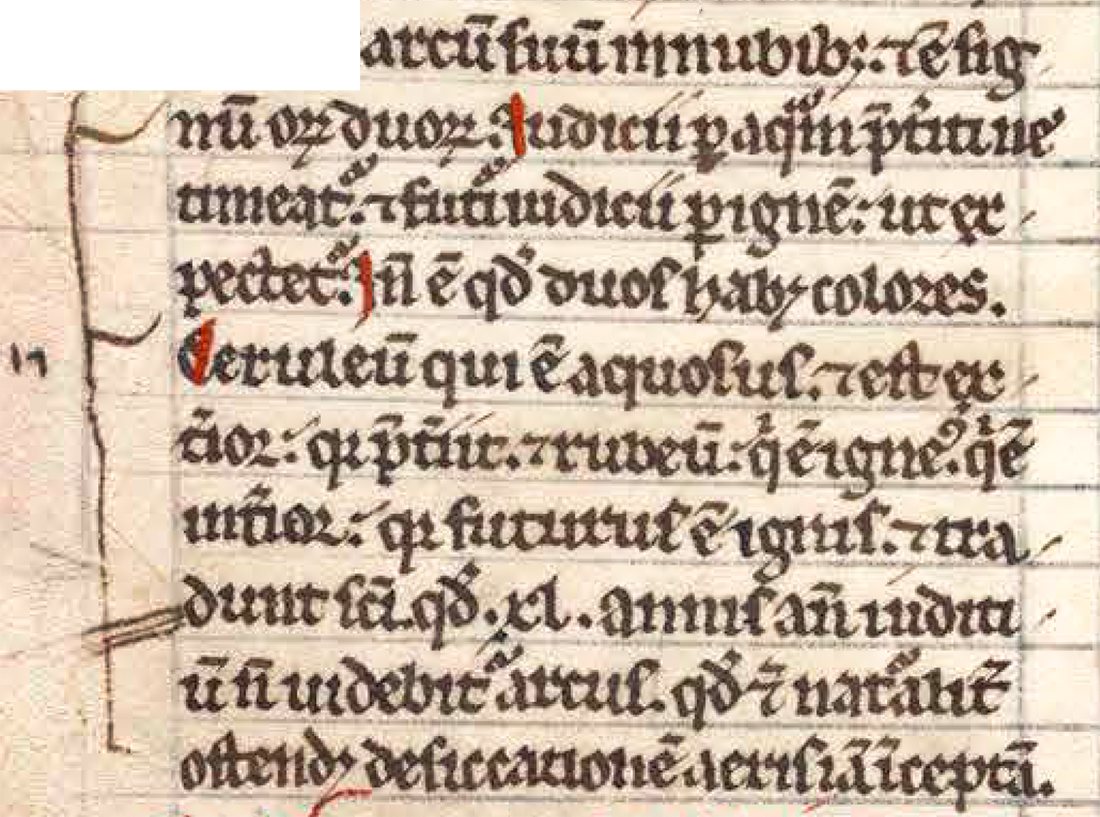 arcū suū in nubib; ⁊ ē sig
nū oꝝ duoꝝ. Judicii ꝑ aqͣm p̄t̾iti ne
timeat᷑. ⁊ fut᷑i iudicii ꝑ ignē: ut ex
pectet᷑. Jn̄ ē qd̾ duos habꝫ colores.
Ceruleū qui ē aquosus. ⁊ est ex
t̾ior: qꝛ p̄t̾iit. ⁊ rubeū: qͥ ē igneꝰ. qͥ ē
int̾ior: qꝛ futurus ē ignis. ⁊ tra
dunt sc̄i. qd̾ .xl. annis an̄ iuditi
ū n̄ uidebit᷑ arcus. qd̾ ⁊ nat᷑alit̾
ostendꝫ desiccationē aeris iā īceptā.